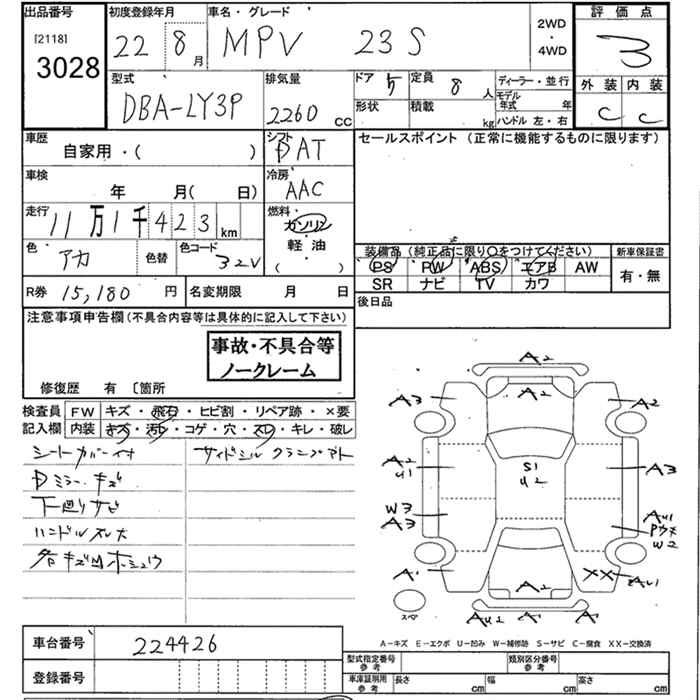 出品番号
[2118]
3028
初度登録年月
22 8月
車名・グレード
MPV 23S
2WD
・
4WD
評価点
3
外装 内装
C C
型式
DBA-LY3P
排気量
2260 CC
ドア 5
定員 8人
形状
積載 kg
ディーラー・並行
モデル年式 年
ハンドル 左・右
車歴
自家用・( )
シフト
DAT
セールスポイント (正常に機能するものに限ります)
車検
年 月( 日)
冷房
AAC
走行
11万1千423km
燃料
ガソリン
軽・油
( )
色
アカ
色替
色コード
32V
装備品(純正品に限り○をつけてください)
新車保証書
PS PW ABS エアB AW
SR ナビ TV カワ
有・無
R券 15,180 円
名変期限 月 日
後日品
注意事項申告欄(不具合内容等は具体的に記入して下さい)
事故・不具合等
ノークレーム
修復歴 有 〔箇所
検査員
記入欄
FW キズ・飛石・ヒビ割・リペア跡・×要
内装 キズ・汚れ・コゲ・穴・スレ・キレ・破レ
シートカバー付
サイドシルクランプアト
Dミラーキズ
下廻りサビ
ハンドルスレ大
各キズ凹ホシュウ
A2
A2
A3
A2
A2
U1
S1
U2
A3
W3
A3
AU1
Pカケ
W2
A1
A2
XX
AU1
スペア
AU2
A1
A1
A-キズ E-エクボ U-凹み W-補修跡 S-サビ C-腐食 XX-交換済
車台番号
224426
登録番号
型式指定番号
参考
類別区分番号
参考
車庫証明用
参考
長さ cm
幅 cm
高さ cm